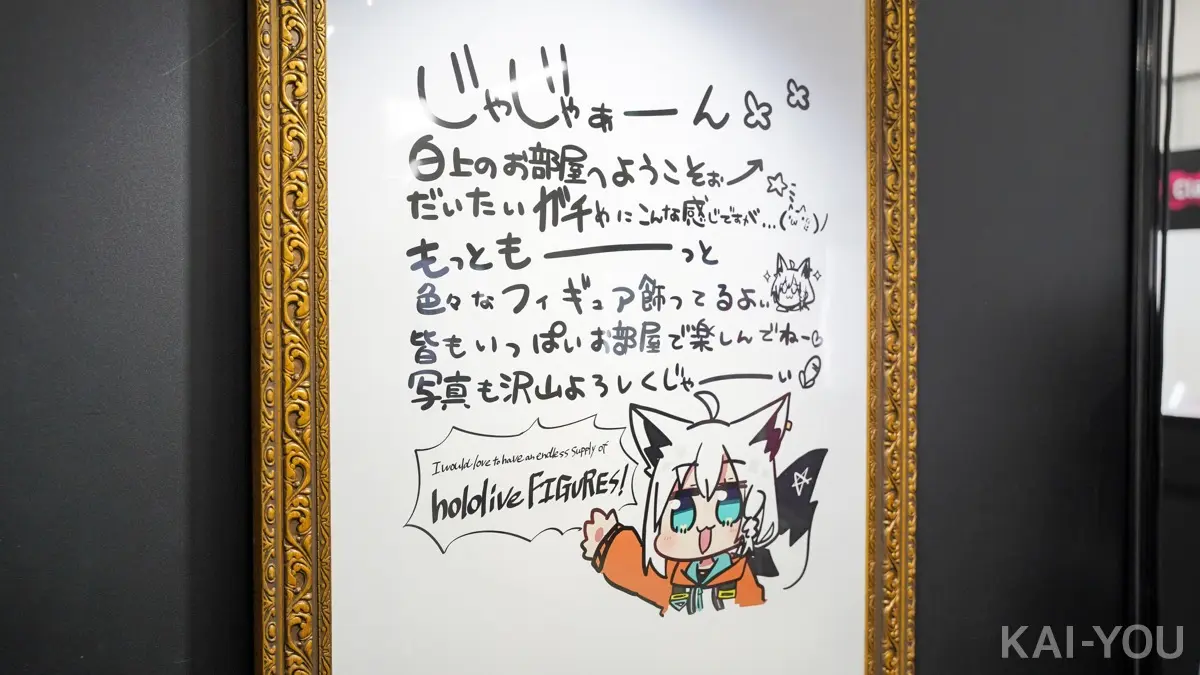 じゃじゃぁーん
白上のお部屋へようこそぉ
だいたいガチめにこんな感じですが...
もっともーっと
色々なフィギュア飾ってるよぃ
皆もいっぱいお部屋で楽しんでねー
写真も沢山よろしくじゃーい
I would love to have an endless supply of
hololive FIGURES!
KAI-YOU